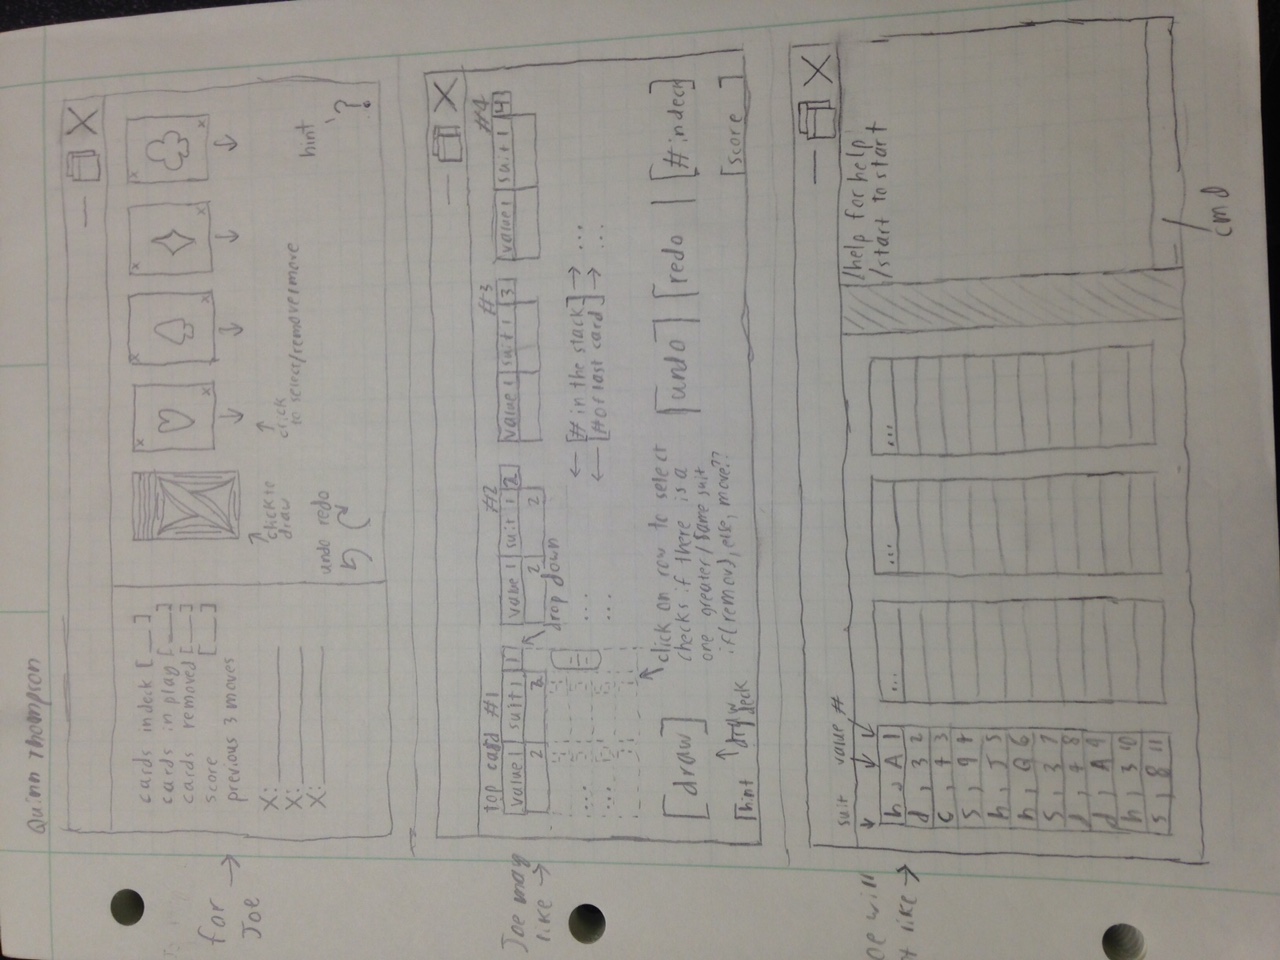 Quinn Thompson
for
Joe
cards in deck [ __ ]
cards in play [ __ ]
cards removed [ __ ]
score [ __ ]
previous 3 moves
X: ________
X: ________
X: ________
x x x x
x x x x
click to
draw
click
to select/remove/move
undo redo
hint
?
Joe may
like
top card #1 #2 #3 #4
value 1 suit 1 1 value 1 suit 1 2 value 1 suit 1 3 value 1 suit 1 4
2 2 2 2
drop down
... ...
... ...
[# in the stack] ...
[# of last card] ...
[draw]
click on row to select
checks if there is a
one greater/same suit
if(remov), else, move??
[undo] [redo] [# in deck]
draw
deck
[hint
[score]
oe will
t like
suit value #
h, A 1
d, 3 2
c, 4 3
s, 9 4
h, J 5
h, Q 6
s, 3 7
d, 4 8
d, A 9
h, 3 10
s, 8 11
... ... ...
/help for help
/start to start
cmd